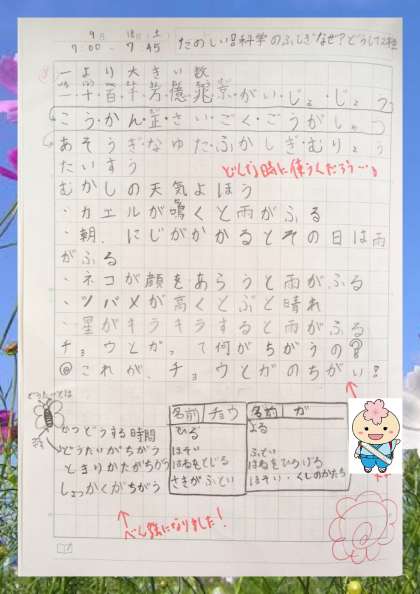 9月 18日(土)
7:00 ～ 7:45 たのしい!科学のふしぎなぜ?どうして2年
一より大きい数
一・十・百・千・万・億・兆・京・がい・じょ・じょう
こう・かん・正・さい・ごく・ごうがしゃ
あそうぎ・なゆた・ふかしぎ・むりょう
たいすう
どんな時に使うんだろう…。
むかしの天気よほう
・カエルが鳴くと雨がふる
・朝、にじがかかるとその日は雨
がふる
・ネコが顔をあらうと雨がふる
・ツバメが高くとぶと晴れ
・星がキラキラすると雨がふる
チョウとガって何がちがうの?
◎これが、チョウとガのちがい!
名前 チョウ 名前 ガ
かつどうする時間 ひる よる
どうたいがちがう ほそい ふとい
とまりかたがちがう はねをとじる はねをひろげる
しょっかくがちがう さきがふとい ほそい・くしのかたち
べん強になりました!